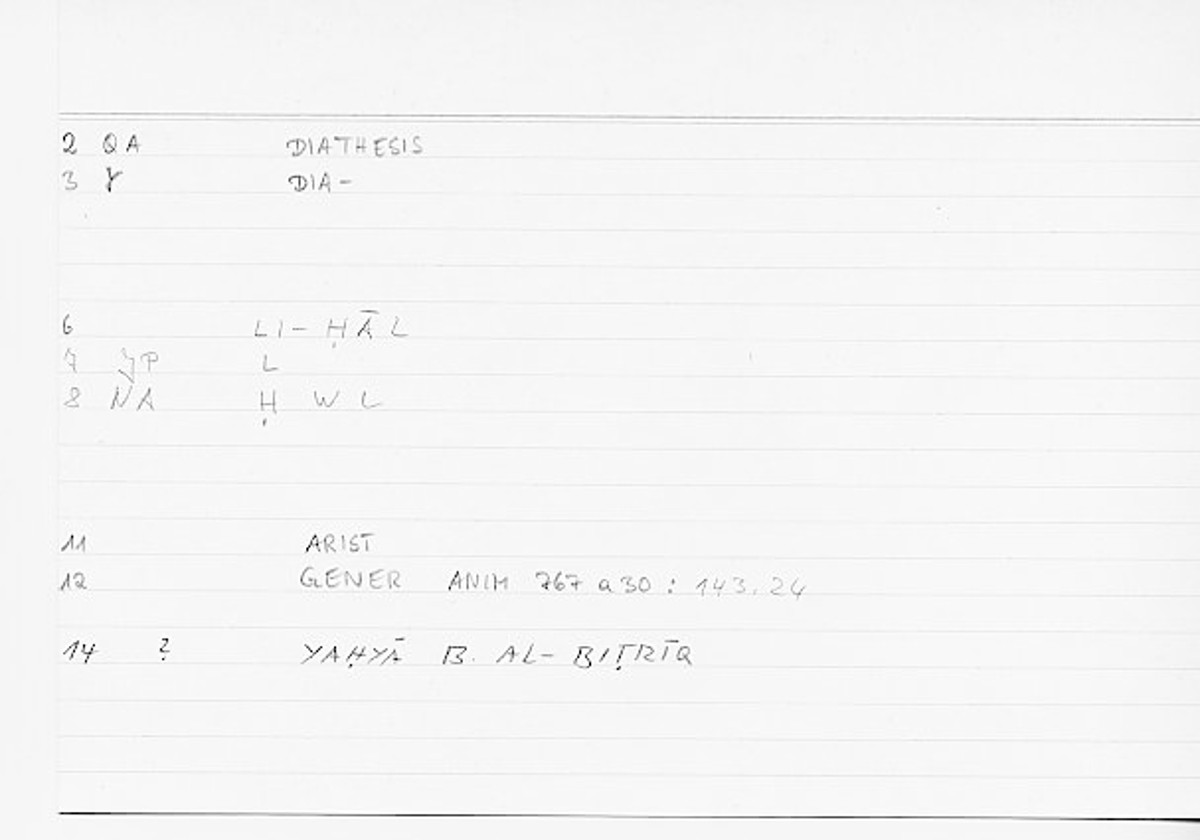 2 QA DIATHESIS
3 Ɣ DIA-
6 LI-ḤĀL
7 JP L
8 NA Ḥ W L
11 ARIST
12 GENER ANIM 767 a 30 : 143.24
14 ? YAḤYĀ B. AL-BIṬRĪQ